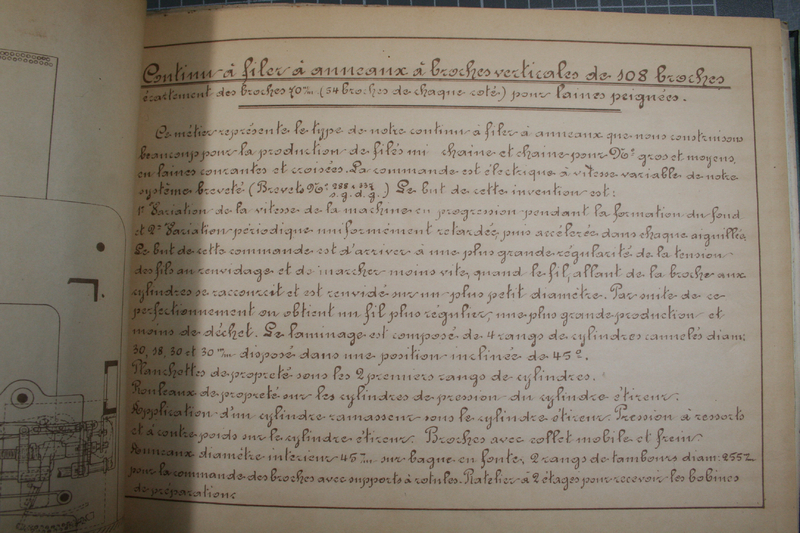 Continu à filer à anneaux à broches verticales de 108 broches
écartement des broches 70m/m (54 broches de chaque coté) pour laines peignées.
Ce métier représente le type de notre continu à filer à anneaux que nous construisons
beaucoup pour la production de filés mi chaine et chaine pour Nos gros et moyens,
en laines courantes et croisées. La commande est électrique à vitesse variable de notre
système breveté (Brevets Nos 288 s. g. d. g.) Le but de cette invention est:
1° Variation de la vitesse de la machine en progression pendant la formation du fond
et 2° Variation périodique uniformément retardée, puis accélérée dans chaque aiguillée.
Le but de cette commande est d'arriver à une plus grande régularité de la tension
des fils au renvidage et de marcher moins vite, quand le fil, allant de la broche aux
cylindres se raccourcit et est renvidé sur un plus petit diamètre. Par suite de ce
perfectionnement on obtient un fil plus régulier, une plus grande production et
moins de déchet. Le laminage est composé de 4 rangs de cylindres cannelés diam:
30, 18, 30 et 30 m/m disposé dans une position inclinée de 45°.
Planchettes de propreté sous les 2 premiers rangs de cylindres.
Rouleaux de propreté sur les cylindres de pression du cylindre étireur.
Application d'un cylindre ramasseur sous le cylindre étireur. Pression à ressorts
et à contre poids sur le cylindre étireur. Broches avec collet mobile et frein
Anneaux diamètre intérieur 45 m/m sur bague en fonte, 2 rangs de tambours diam:
pour la commande des broches avec supports à rotules. Ratelier à 2 étages pour recevoir les bobines
de préparation.